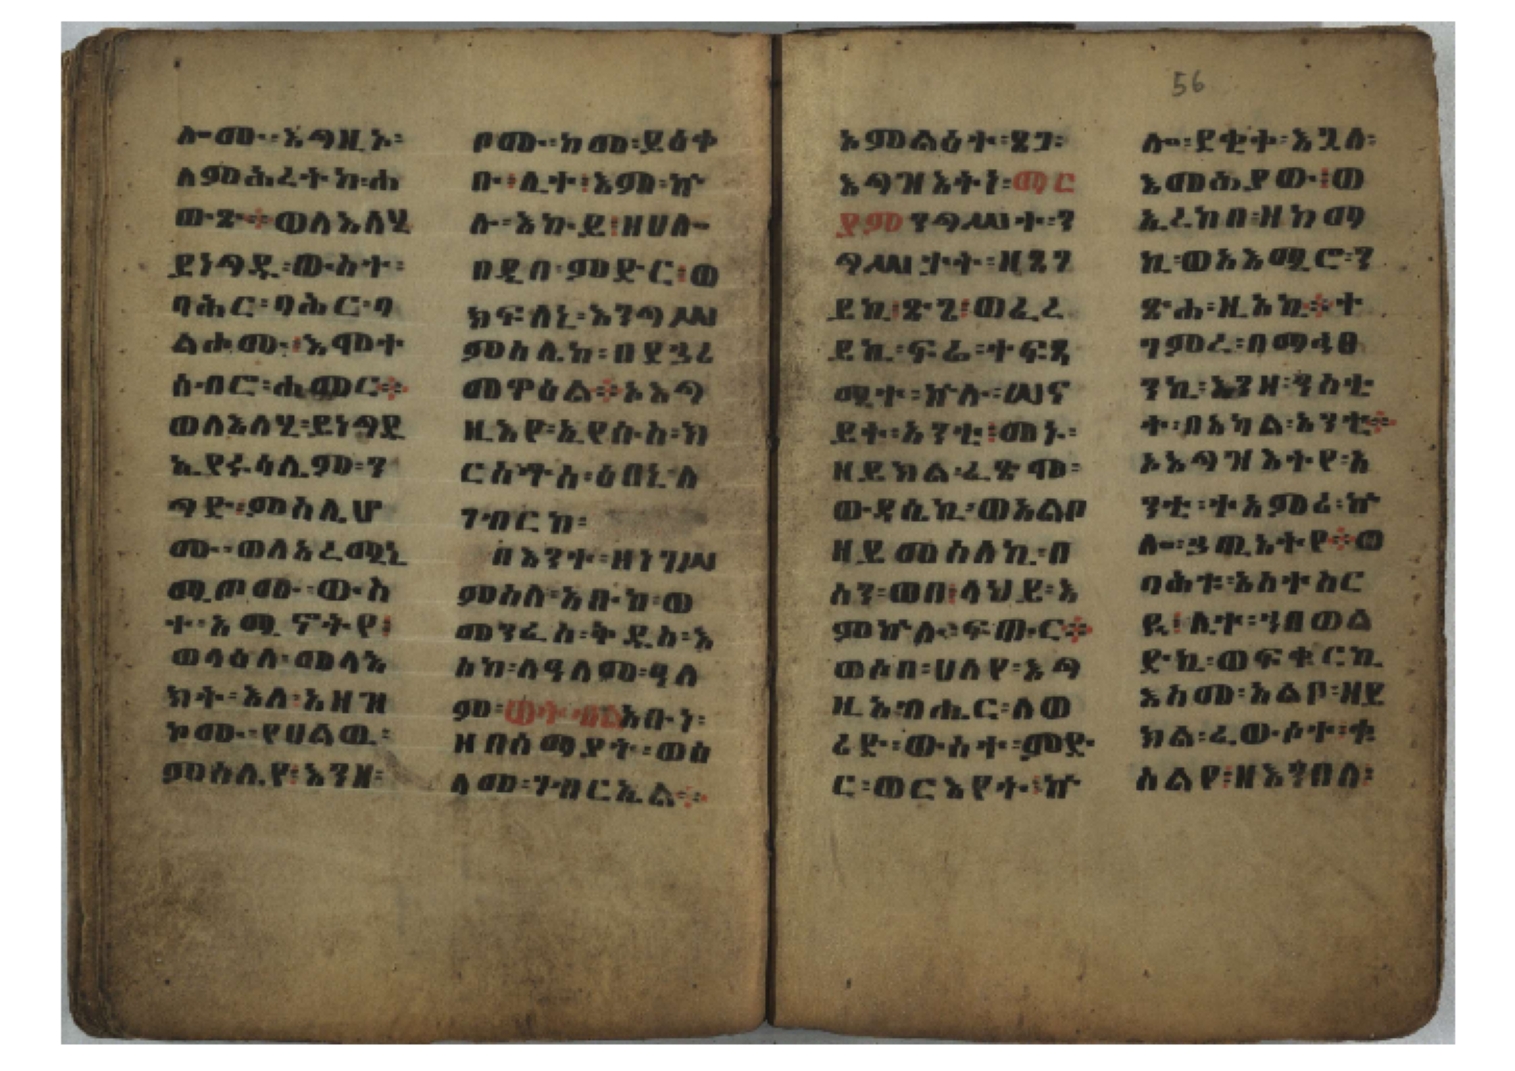 56
ሎሙ፡እግዚኡ፡
ለምሕረትከ፡ሐ
ውጽ፨ወለእለሂ
ይነግዱ፡ውስተ፡
ባሕር፡ባሕር፡ባ
ልሖሙ፡እሞተ
ስብሮ፡ሐመር፨
ወለእለሂ፡ይነግደ
ኢየሩሳሌም፡ን
ግድ፡ምስሌሆ
ሙ፡ወለአረሚኒ
ሚጦሙ፡ውስ
ተ፡አሚኖትየ፡
ወሳዕለ፡መላእ
ክት፡እለ፡አዘዝ
ኮሙ፡የሀልዉ፡
ምስሌየ፡እንዘ፡
ዮሙ፡ከመ፡ይዕቀ
ቡ፡ሊተ፡እም፡ኵ
ሉ፡እኩይ፡ዘሀሎ
በዲበ፡ምድር፡ወ
ክፍለኒ፡እንግሥ
ምስሌከ፡በደኃሪ
መዋዕል፨ኦእግ
ዚእየ፡ኢየሱስ፡ክ
ርስቶስ፡ዕበኒ፡ለ
ገብርከ፡
በእንተ፡ዘነገሥ
ምስለ፡አቡከ፡ወ
መንፈስ፡ቅዱስ፡እ
ስከ፡ለዓለም፡ዓለ
ም፡ወትብል፡አቡነ፡
ዘበሰማያት፡ወሰ
ላመ፡ገብርኤል፨
እምልዕተ፡ጸጋ፡
እግዝእትነ፡ማር
ያም፡ንግሥተ፡ን
ግሥታት፡ዘጸገ
ይኪ፡ጽጌ፡ወፈረ
ይኪ፡ፍሬ፡ተፍጻ
ሚተ፡ኵሉ፡ሠና
ይት፡አንቲ፡መኑ፡
ዘይክል፡ፈጽሞ፡
ውዳሴኪ፡ወአልቦ
ዘይመስለኪ፡በ
ስን፡ወበ፡ላህይ፡እ
ምኵሉ፡ፍጡር፨
ወሶበ፡ሀለየ፡እግ
ዚአብሔር፡ለወ
ሪድ፡ውስተ፡ምድ
ር፡ወርእየት፡ኵ
ሎ፡ደቂቀ፡እጓለ፡
እመሕያው፡ወ
ኢረከበ፡ዘከማ
ኪ፡ወአእሚሮ፡ን
ጽሐ፡ዚአኪ፨ተ
ገምረ፡በማኅፀ
ንኪ፡እንዘ፡ንስቲ
ት፡በአካል፡አንቲ፨
ኦእግዝእትየ፡አ
ንቲ፡ተአምሪ፡ኵ
ሎ፡ኃጢአትየ፨ወ
ባሕቱ፡አስተስር
ዪ፡ሊተ፡ኀበወል
ድኪ፡ወፍቁርኪ
እስመ፡አልቦ፡ዘይ
ክል፡ፈውሶተ፡ቍ
ስልየ፡ዘእንበለ፡